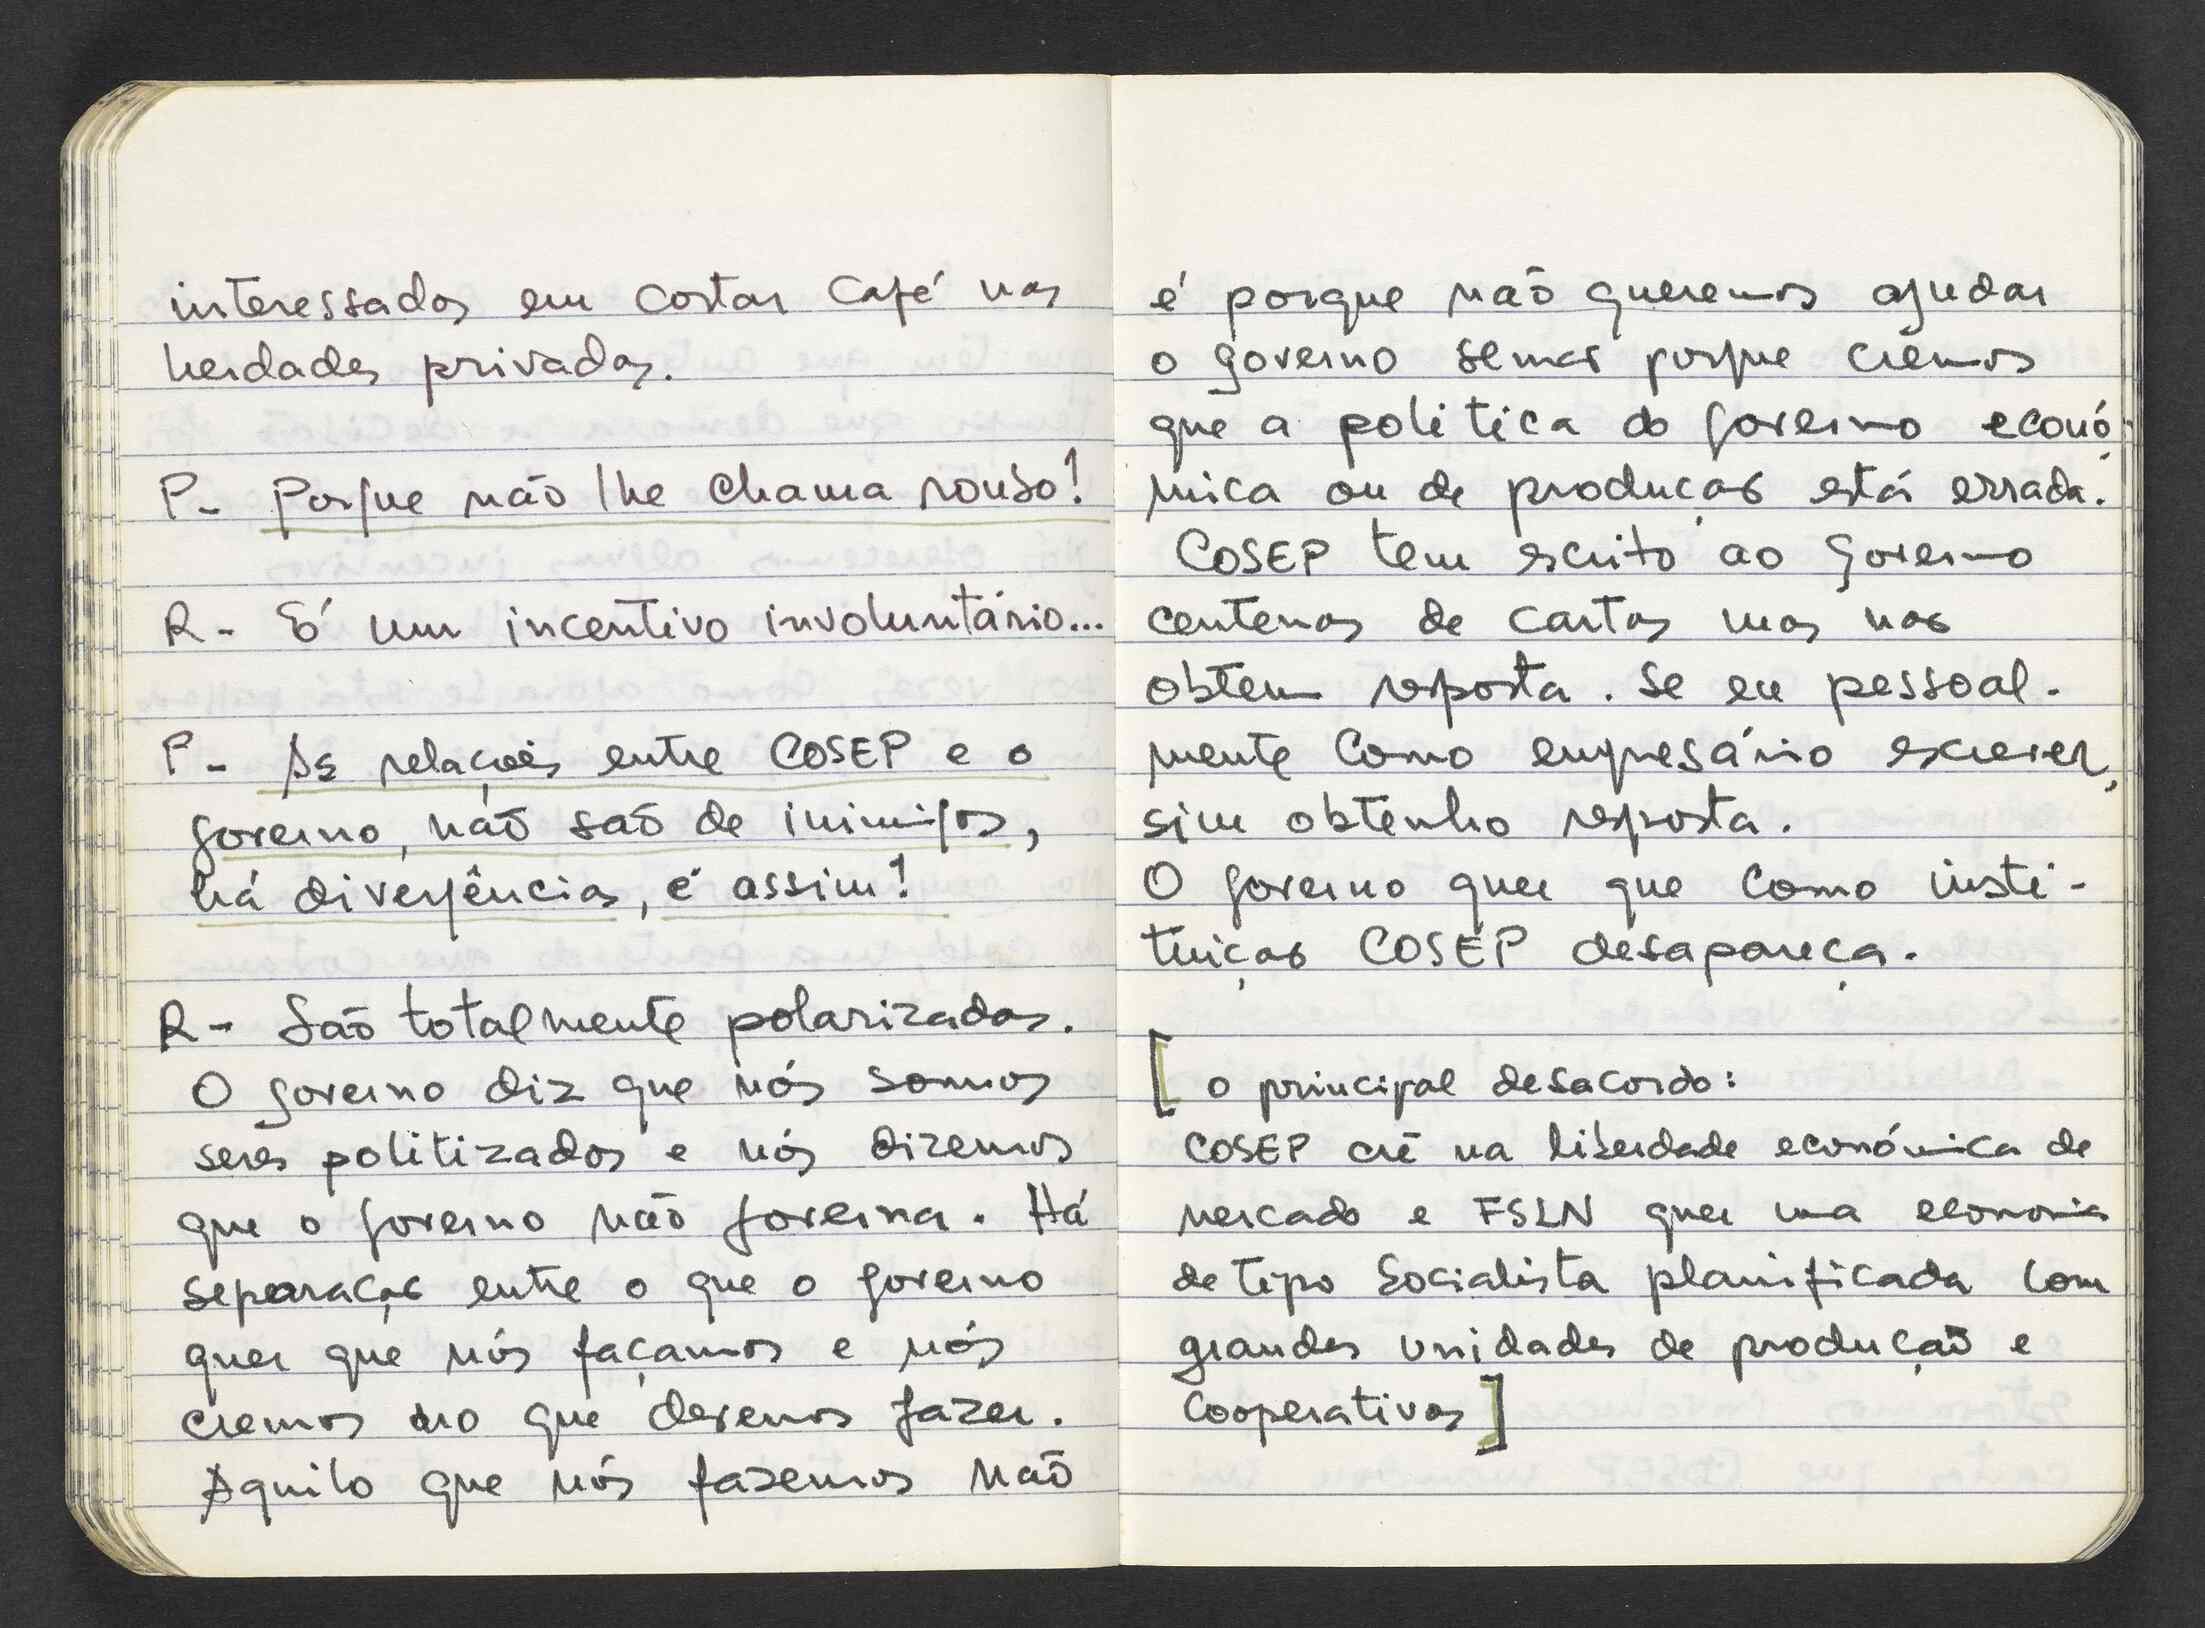 interessados em cortar café nas
herdades privadas.
P- Porque não lhe chama roubo!
R- É um incentivo involuntário...
P- As relações entre COSEP e o
governo, não são de inimigos,
há divergências, é assim!
R- São totalmente polarizadas.
O governo diz que nós somos
seres politizados e nós dizemos
que o governo não governa. Há
separação entre o que o governo
quer que nós façamos e nós
cremos no que devemos fazer.
Aquilo que nós fazemos não
é porque não queremos ajudar
o governo senão porque cremos
que a politica do governo econó-
mica ou de produção está errada.
COSEP tem escrito ao governo
centenas de cartas mas não
obtem resposta. Se eu pessoal-
mente como empresário escrever,
sim obtenho resposta.
O governo quer que como insti-
tuição COSEP desapareça.
[ o principal desacordo:
COSEP crê na liberdade económica de
mercado e FSLN quer uma economia
de tipo socialista planificada com
grandes unidades de produção e
cooperativas ]